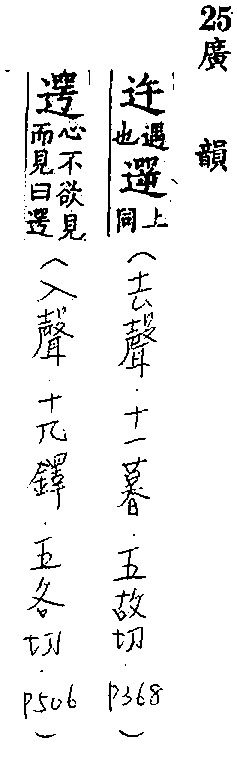 25廣韻
迕遇也遻上同(去聲.十一暮.五故切.P368)
遌心不欲見而見曰遌(入聲.十九鐸.五各切.P506)